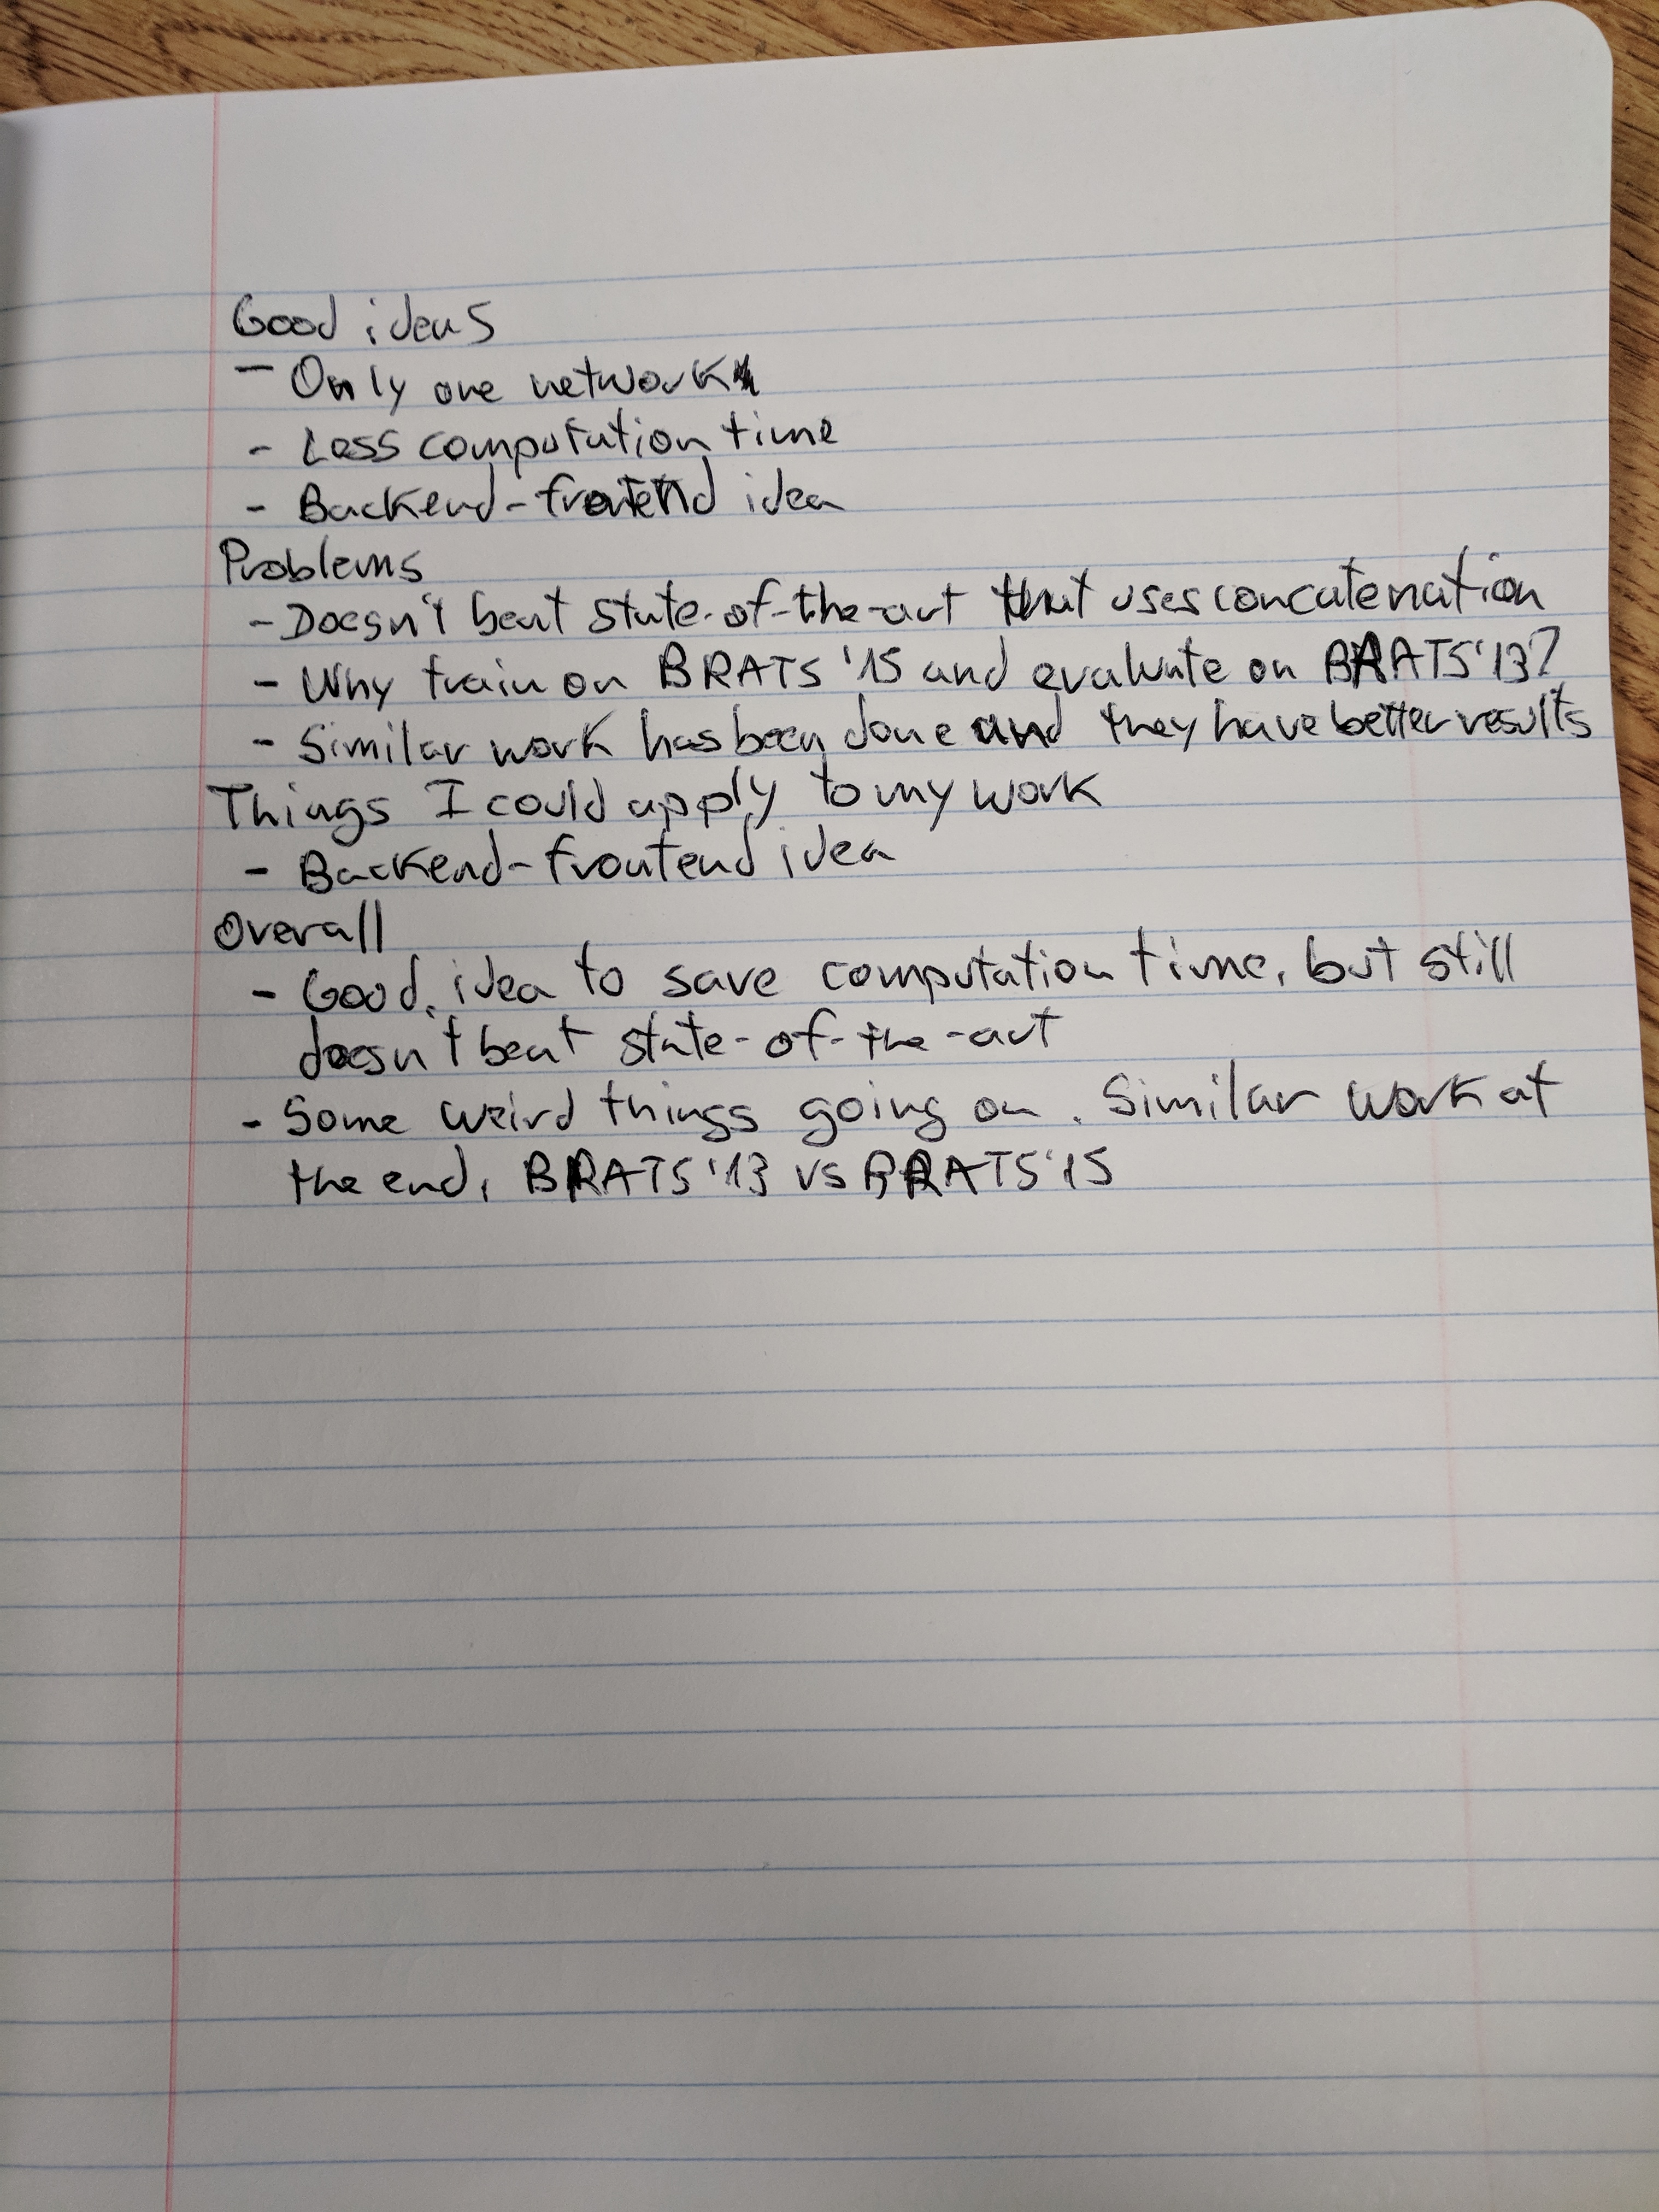 Good ideas
- Only one network
- Less computation time
- Backend-frontend idea
Problems
- Doesn't beat state-of-the-art that uses concatenation
- Why train on BRATS '15 and evaluate on BRATS '13?
- Similar work has been done and they have better results
Things I could apply to my work
- Backend-frontend idea
Overall
- Good idea to save computation time, but still
doesn't beat state-of-the-art
- Some weird things going on. Similar work at
the end, BRATS '13 vs BRATS '15